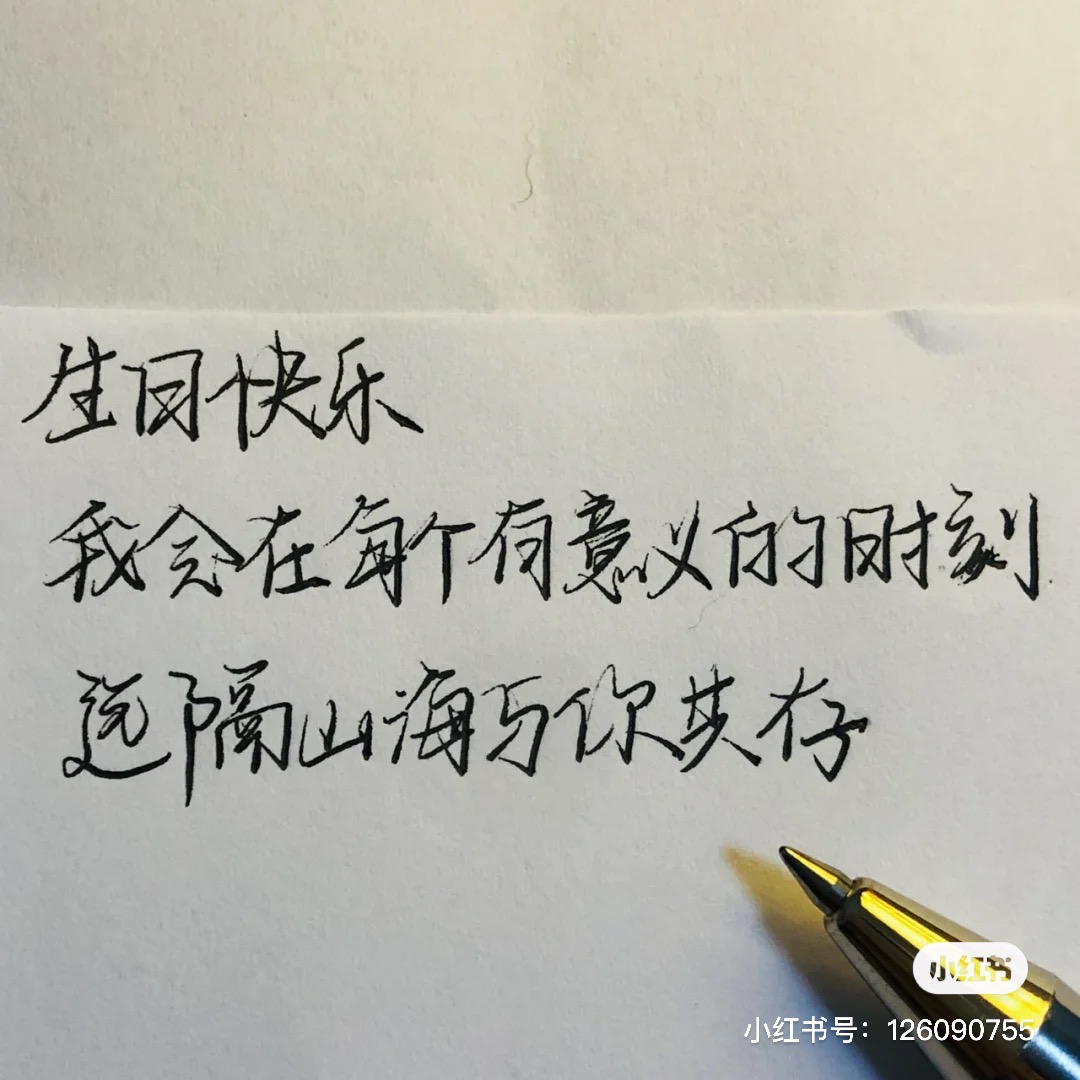 生日快乐
我会在每个有意义的时刻
远隔山海与你共存
小红书
小红书号：126090755